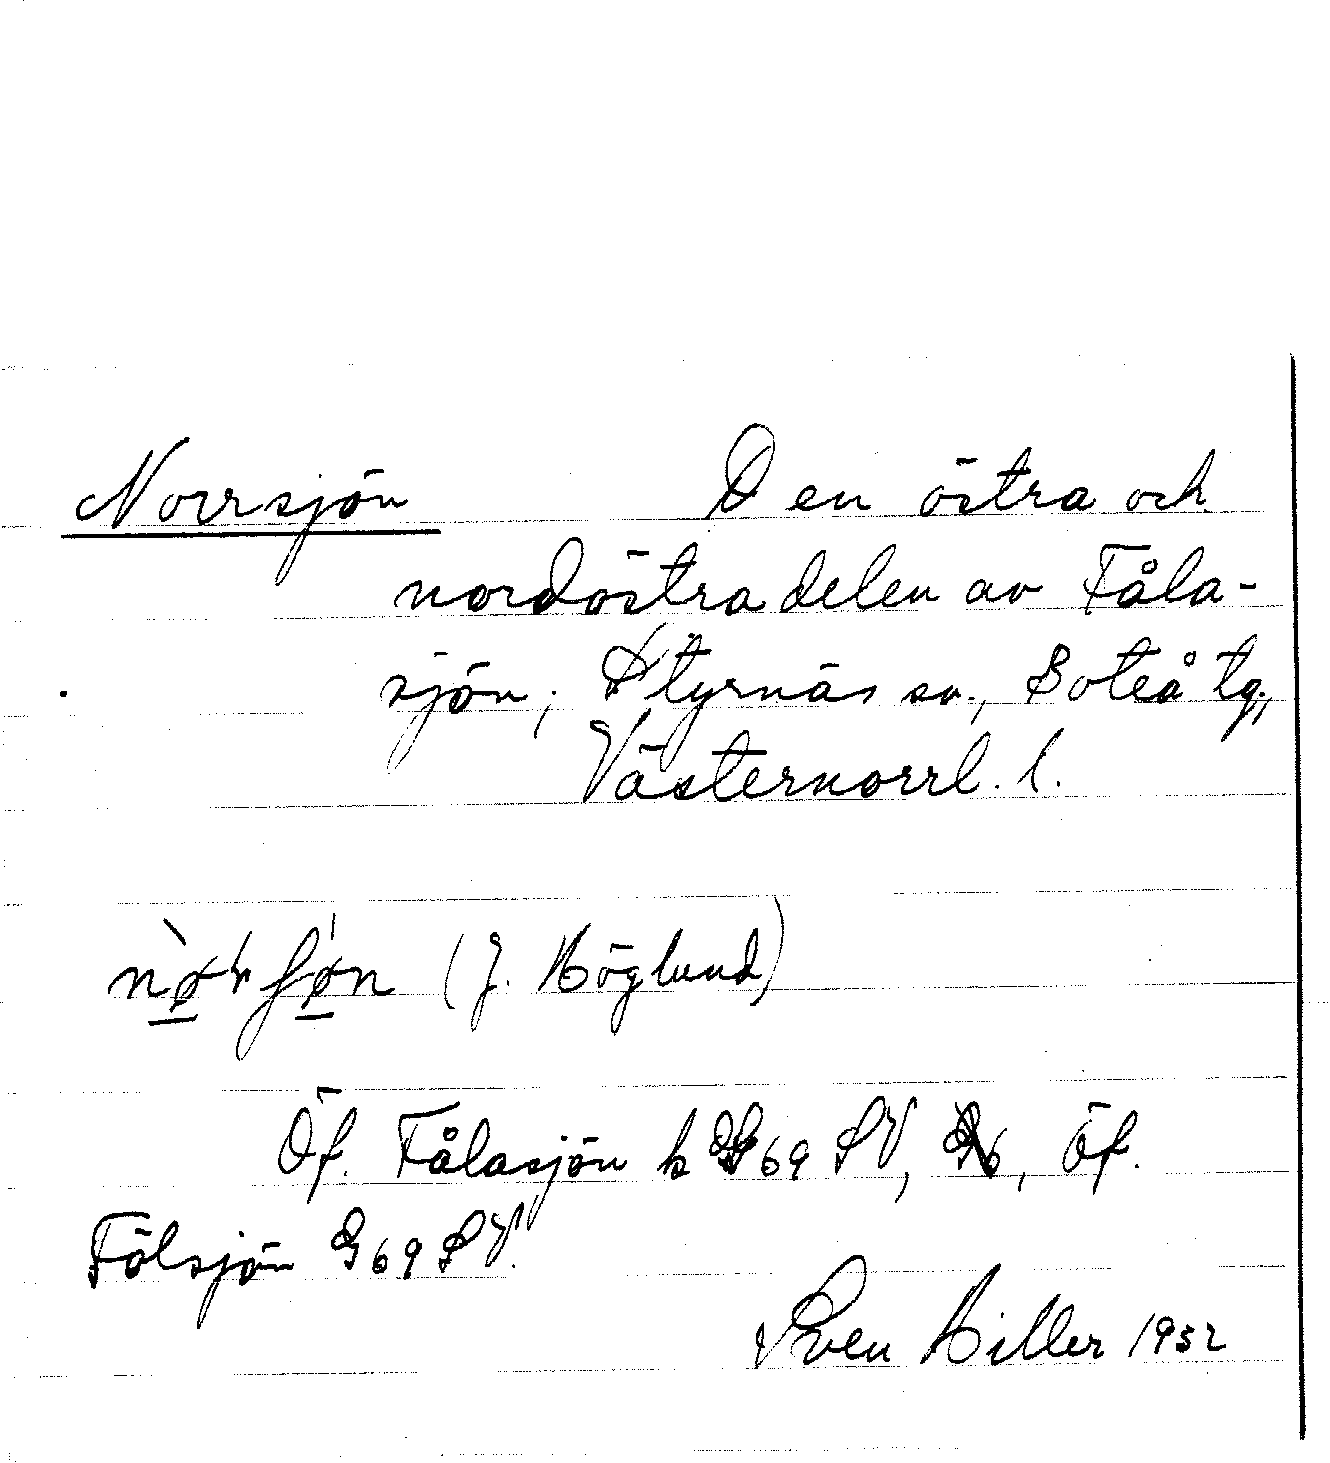 Norrsjön Den östra och
nordöstra delen av Fåla-
sjön; Styrnäs sn., Boteå tg.,
Västernorrl. l.
(J. Höglund)
Öf. Fålasjön k G69 SV, Öf.
Fölsjön G69 SV.
Sven Hiller 1932